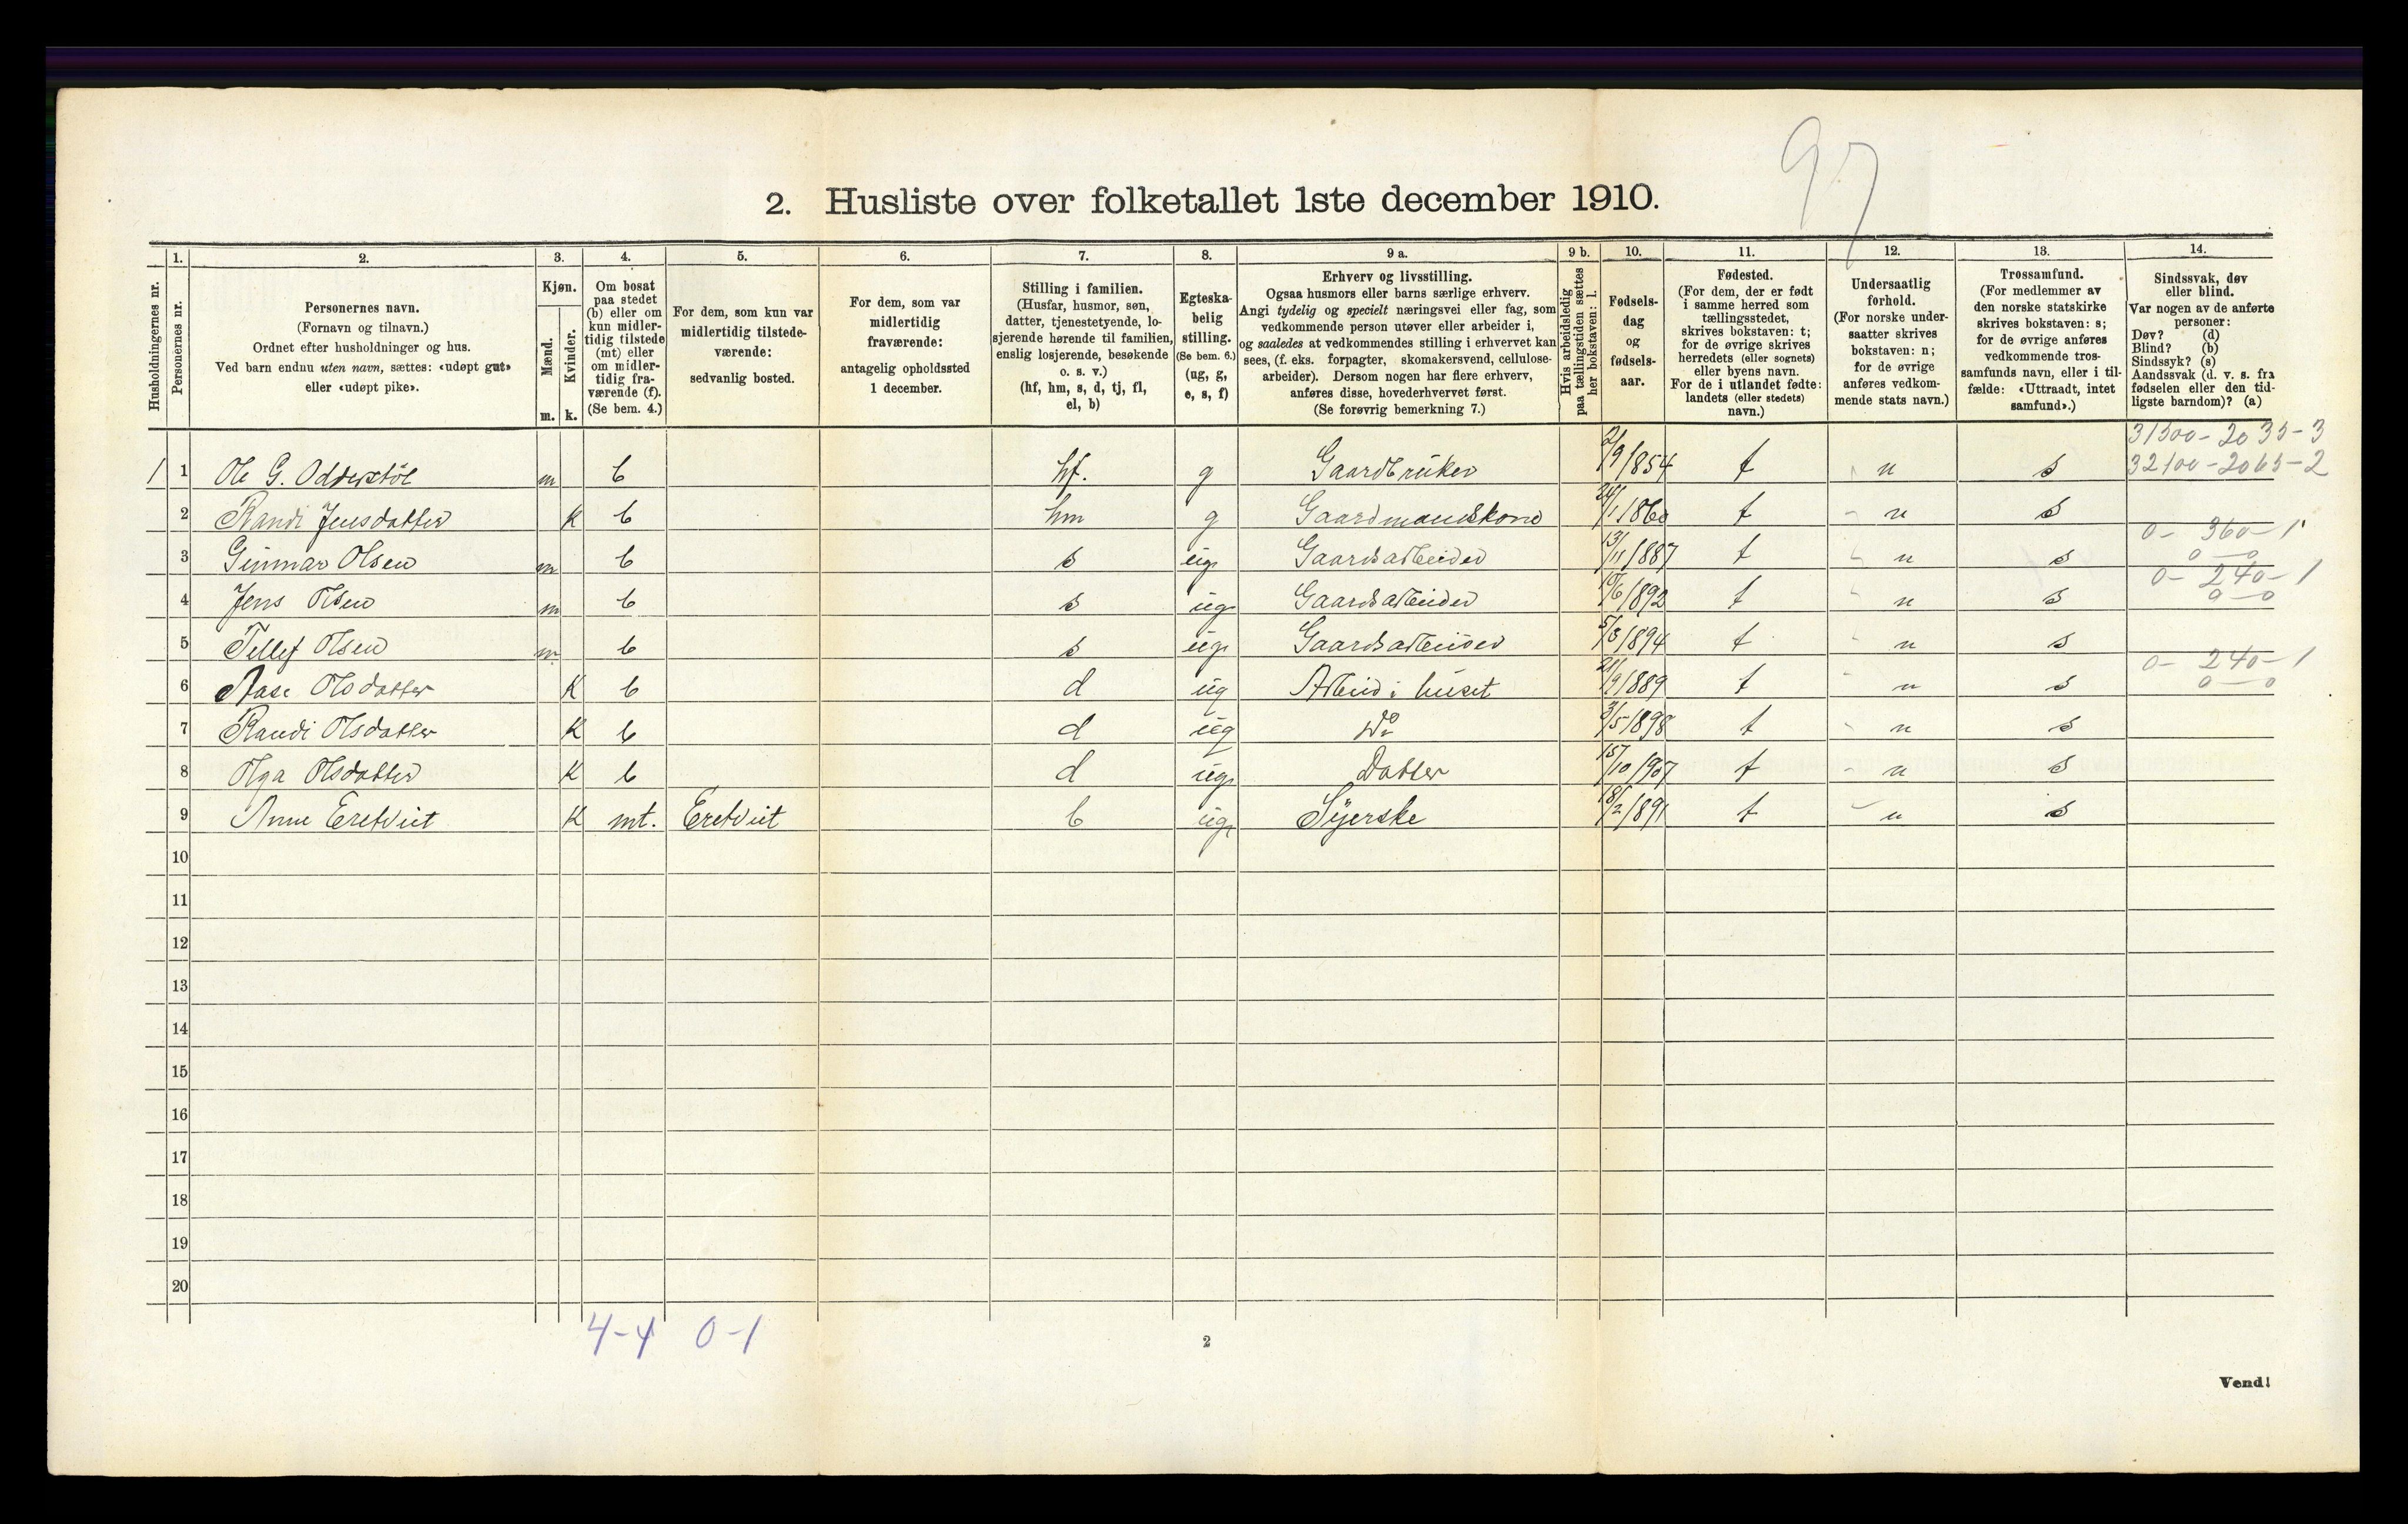 97
2. Husliste over folketallet 1ste december 1910.
Husholdningernes nr.
1.
Personernes nr.
2.
Personernes navn.
(Fornavn og tilnavn.)
Ordnet efter husholdninger og hus.
Ved barn endnu uten navn, sættes: «udøpt gut»
eller «udøpt pike».
3.
Kjøn.
Mænd.
m.
Kvinder.
k.
4.
Om bosat
paa stedet
(b) eller om
kun midler-
tidig tilstede
(mt) eller
om midler-
tidig fra-
værende (f).
(Se bem. 4.)
5.
For dem, som kun var
midlertidig tilstede-
værende:
sedvanlig bosted.
6.
For dem, som var
midlertidig
fraværende:
antagelig opholdssted
1 december.
7.
Stilling i familien.
(Husfar, husmor, søn,
datter, tjenestetyende, lo-
sjerende hørende til familien,
enslig losjerende, besøkende
o. s. v.)
(hf, hm, s, d, tj, fl,
el, b)
8.
Egteska-
belig
stilling.
(Se bem. 6.)
(ug, g,
e, s, f)
9 a.
Erhverv og livsstilling.
Ogsaa husmors eller barns særlige erhverv.
Angi tydelig og specielt næringsvei eller fag, som
vedkommende person utøver eller arbeider i,
og saaledes at vedkommendes stilling i erhvervet kan
sees, (f. eks. forpagter, skomakersvend, cellulose-
arbeider). Dersom nogen har flere erhverv,
anføres disse, hovederhvervet først.
(Se forøvrig bemerkning 7.)
9 b.
Hvis arbeidsledig
paa tællingstiden sættes
her bokstaven: l.
10.
Fødsels-
dag
og
fødsels-
aar.
11.
Fødested.
(For dem, der er født
i samme herred som
tællingsstedet,
skrives bokstaven: t;
for de øvrige skrives
herredets (eller sognets)
eller byens navn.
For de i utlandet fødte:
landets (eller stedets)
navn.)
12.
Undersaatlig
forhold.
(For norske under-
saatter skrives
bokstaven: n;
for de øvrige
anføres vedkom-
mende stats navn.)
13.
Trossamfund.
(For medlemmer av
den norske statskirke
skrives bokstaven: s;
for de øvrige anføres
vedkommende tros-
samfunds navn, eller i til-
fælde: «Uttraadt, intet
samfund».)
14.
Sindssvak, døv
eller blind.
Var nogen av de anførte
personer:
Døv? (d)
Blind? (b)
Sindssyk? (s)
Aandssvak (d. v. s. fra
fødselen eller den tid-
ligste barndom)? (a)
31500-2035-3
1 1 Ole G. Odderstøl m b hf. g Gaardbruker 2/9 1854 t n s 32100-2065-2
2 Randi Jensdatter k b hm g Gaardmanskone 24/1 1860 t n s
3 Gunnar Olsen m b s ug Gaardsarbeider 13/11 1887 t n s 0- 360-1
0-0
4 Jens Olsen m b s ug Gaardsarbeider 10/6 1892 t n s 0- 240-1
0-0
5 Tellef Olsen m b s ug Gaardsarbeider 5/3 1894 t n s
6 Aase Olsdatter k b d ug Arbeid i huset 21/9 1889 t n s 0- 240-1
0-0
7 Randi Olsdatter k b d ug Do 3/5 1898 t n s
8 Olga Olsdatter k b d ug Datter 15/10 1907 t n s
9 Anne Eretveit k mt. Eretveit b ug Syerske 18/2 1891 t n s
10
11
12
13
14
15
16
17
18
19
20
4-4 0-1
2
Vend!